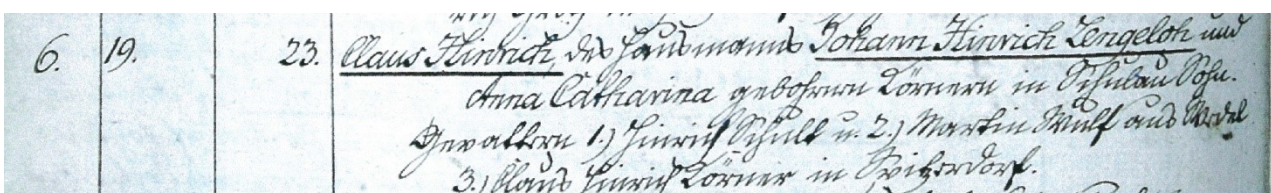 6. 19. 23. Claus Hinrich, des Hausmanns Johann Hinrich Lengeloh und
Anna Catharina gebohrnen Körnern in Schulau Sohn.
Gevattern 1.) Hinrich Schult u. 2.) Martin Wulf aus Wedel
3.) Claus Hinrich Körner in Spitzerdorf.